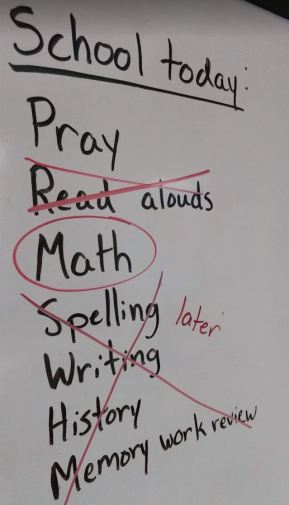 School today:
Pray
Read alouds
Math
Spelling later
Writing
History
Memory work review